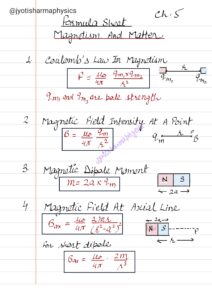 @jyotisharmaphysics
Ch. 5
Formula Sheet
Magnetism And Matter
1. Coulomb's Law In Magnetism
F = μ₀/4π qₘ₁qₘ₂/r²
r
qₘ₁ qₘ₂
qₘ₁ and qₘ₂ are pole strength
2. Magnetic Field Intensity At A Point
B = μ₀/4π qₘ/r²
qₘ r P B
3. Magnetic Dipole Moment
m = 2a × qₘ
N S
2a
4. Magnetic Field At Axial Line
Bₐₓ = μ₀/4π 2mr/(r²-a²)²
2a
N S P
r
For short dipole
Bₐₓ = μ₀/4π 2m/r³